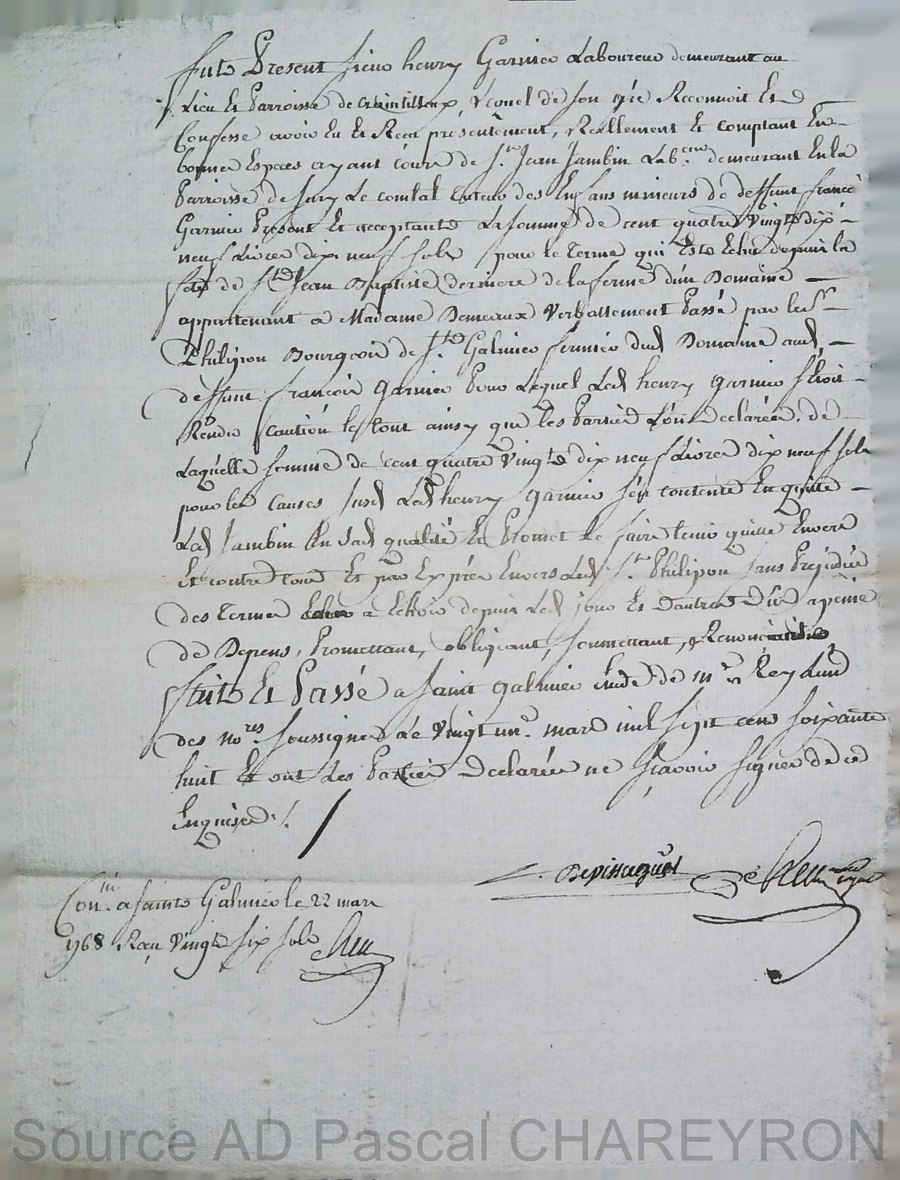 Fute Present sieur henry Garnier Laboureur demeurant au
Lieu Et Parroisse de Craintilleux Lequel de son gré Reconnoit Et
Confesse avoir Eu Et Receu présentement, Reellement Et comptant En
bonnes Especes ayant cours de Sr. Jean Jambin Lab.eur demeurant En la
Parroisse de Sury Le comtal tuteur des Enfans mineurs de deffunt françois
Garnier Present Et acceptante La somme de cent quatre Vingts dix
neuf Livres dix neuf sols pour le terme qui Este Echu depuis la
fete de St. Jean Baptiste derniere de la ferme d'un Domaine
appartenant a Madame Demeaux Verballement Passé par le Sr.
Philipon Bourgeois de St. Galmier fermier dud Domaine aud
deffunt françois Garnier Pour Lequel Led henry garnier s'Etoit
Rendu Caution le tout ainsy que les Parties L'ont declarées, de
Laquelle somme de cent quatre Vingts dix neuf Livres dix neuf sols
pour les causes susd Led henry garnier s'en contente En quitte
Led Jambin En sad qualité Et Promet Le faire tenir quitte Envers
Et contre tous Et par Exprés Envers Led Sr. Philipon sans Prejudice
des termes a Echoir depuis Led jour Et d'autres Dus a peine
de Depens, Promettant, obligeant, soumettant, Renonciation
ffaite Et Passé a Saint galmier Etude de mr. Rey L'un
des nores. soussignes Le Vingt un. mars mil sept cens soixante
huit Et ont Les Parties Declarées ne sçavoir signer de ce
Enquises ./.
Con. a Sainte Galmier le 22 mars
1768 Reçu Vingt six sols
Source AD Pascal CHAREYRON